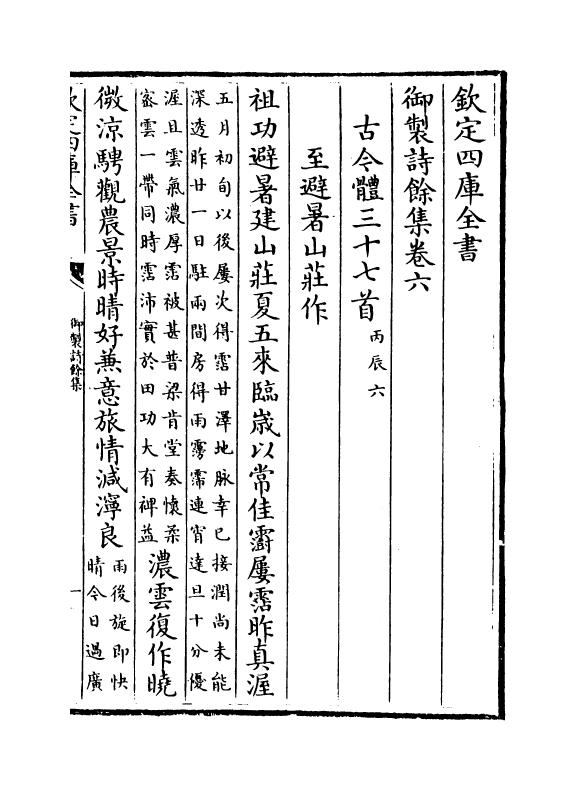 欽定四庫全書
御製詩餘集卷六
古今體三十七首丙辰六
至避暑山莊作
祖功避暑建山莊夏五來臨歲以常佳霨屢霑昨真渥
五月初旬以後屢次得霑甘澤地脉幸已接潤尚未能
深透昨廿一日駐兩間房得雨霶霈連宵達旦十分優
渥且雲氣濃厚霑被甚普梁肯堂奏懷柔
密雲一帶同時霑沛實於田功大有裨益
濃雲復作曉
微涼騁觀農景時晴好兼意旅情減濘良
雨後旋即快
晴今日過廣
欽定四庫全書
御製詩餘集
一